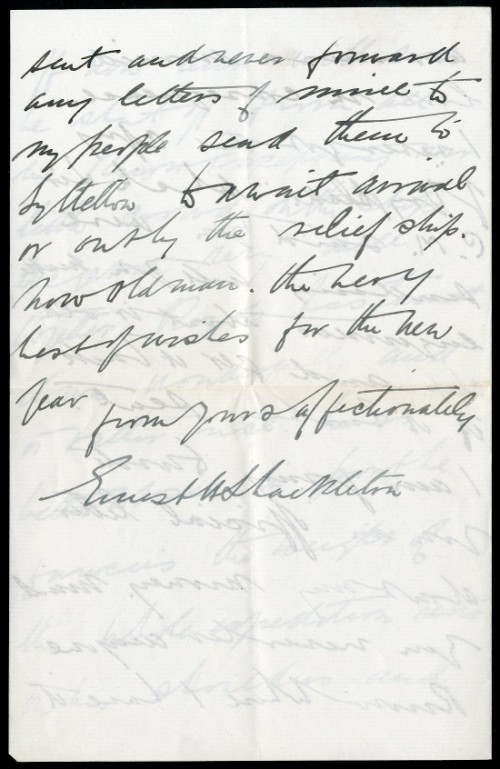 sent and never forward
any letters of mine to
my people send them to
Lyttelton to await arrival
or out by the relief ship.
now old man. the very
best of wishes for the new
year from yours affectionately
Ernest H Shackleton